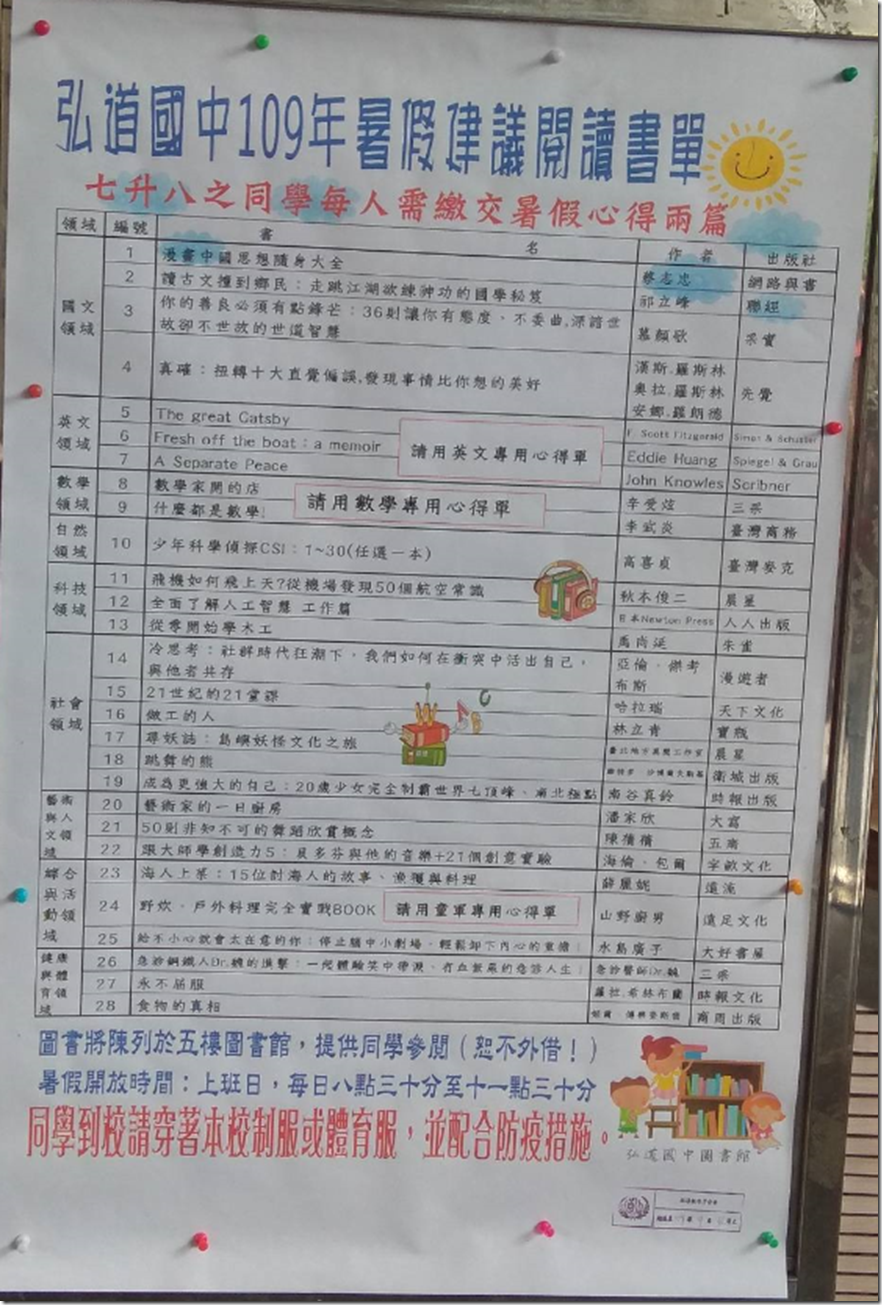 弘道國中109年暑假建議閱讀書單
七升八之同學每人需繳交暑假心得兩篇
領域 編號 書名 作者 出版社
國文領域
1 漫畫中國思想隨身大全 蔡志忠 網路與書
2 讀古文撞到鄉民：走跳江湖欲練神功的國學秘笈 祁立峰 聯經
3 你的善良必須有點鋒芒：36則讓你有態度、不委曲,深諳世故卻不世故的世道智慧 慕顏歌 采實
4 真確：扭轉十大直覺偏誤,發現事情比你想的美好 漢斯.羅斯林 奧拉.羅斯林 安娜.羅朗德 先覺
英文領域
5 The great Gatsby F. Scott Fitzgerald Simon & Schuster
6 Fresh off the boat：a memoir Eddie Huang Spiegel & Grau
7 A Separate Peace John Knowles Scribner
請用英文專用心得單
數學領域
8 數學家開的店 辛受炫 三采
9 什麼都是數學! 李武炎 臺灣商務
請用數學專用心得單
自然領域
10 少年科學偵探CSI：1~30(任選一本) 高喜貞 臺灣麥克
科技領域
11 飛機如何飛上天?從機場發現50個航空常識 秋本俊二 晨星
12 全面了解人工智慧 工作篇 日本Newton Press 人人出版
13 從零開始學木工 禹尚延 朱雀
社會領域
14 冷思考：社群時代狂潮下，我們如何在衝突中活出自己，與他者共存 亞倫．傑考布斯 漫遊者
15 21世紀的21堂課 哈拉瑞 天下文化
16 做工的人 林立青 寶瓶
17 尋妖誌：島嶼妖怪文化之旅 臺北地方異聞工作室 晨星
18 跳舞的熊 衛城出版
19 成為更強大的自己：20歲少女完全制霸世界七頂峰、南北極點 南谷真鈴 時報出版
藝術與人文領域
20 藝術家的一日廚房 潘家欣 大寫
21 50則非知不可的舞蹈欣賞概念 五南
22 跟大師學創造力5：貝多芬與他的音樂+21個創意實驗 海倫．包爾 字畝文化
綜合與活動領域
23 海人上菜：15位討海人的故事、漁獲與料理 薛麗妮 遠流
24 野炊．戶外料理完全實戰BOOK 山野廚男 遠足文化
請用童軍專用心得單
25 給不小心就會太在意的你：停止腦中小劇場，輕鬆卸下內心的重擔！ 水島廣子 大好書屋
健康與體育領域
26 急診鋼鐵人Dr.魏的進擊：一起體驗笑中帶淚、有血有累的急診人生！ 急診醫師Dr.魏 三采
27 永不屈服 羅拉.希林布蘭 時報文化
28 食物的真相 商周出版
圖書將陳列於五樓圖書館，提供同學參閱（恕不外借！）
暑假開放時間：上班日，每日八點三十分至十一點三十分
同學到校請穿著本校制服或體育服，並配合防疫措施。
弘道國中圖書館